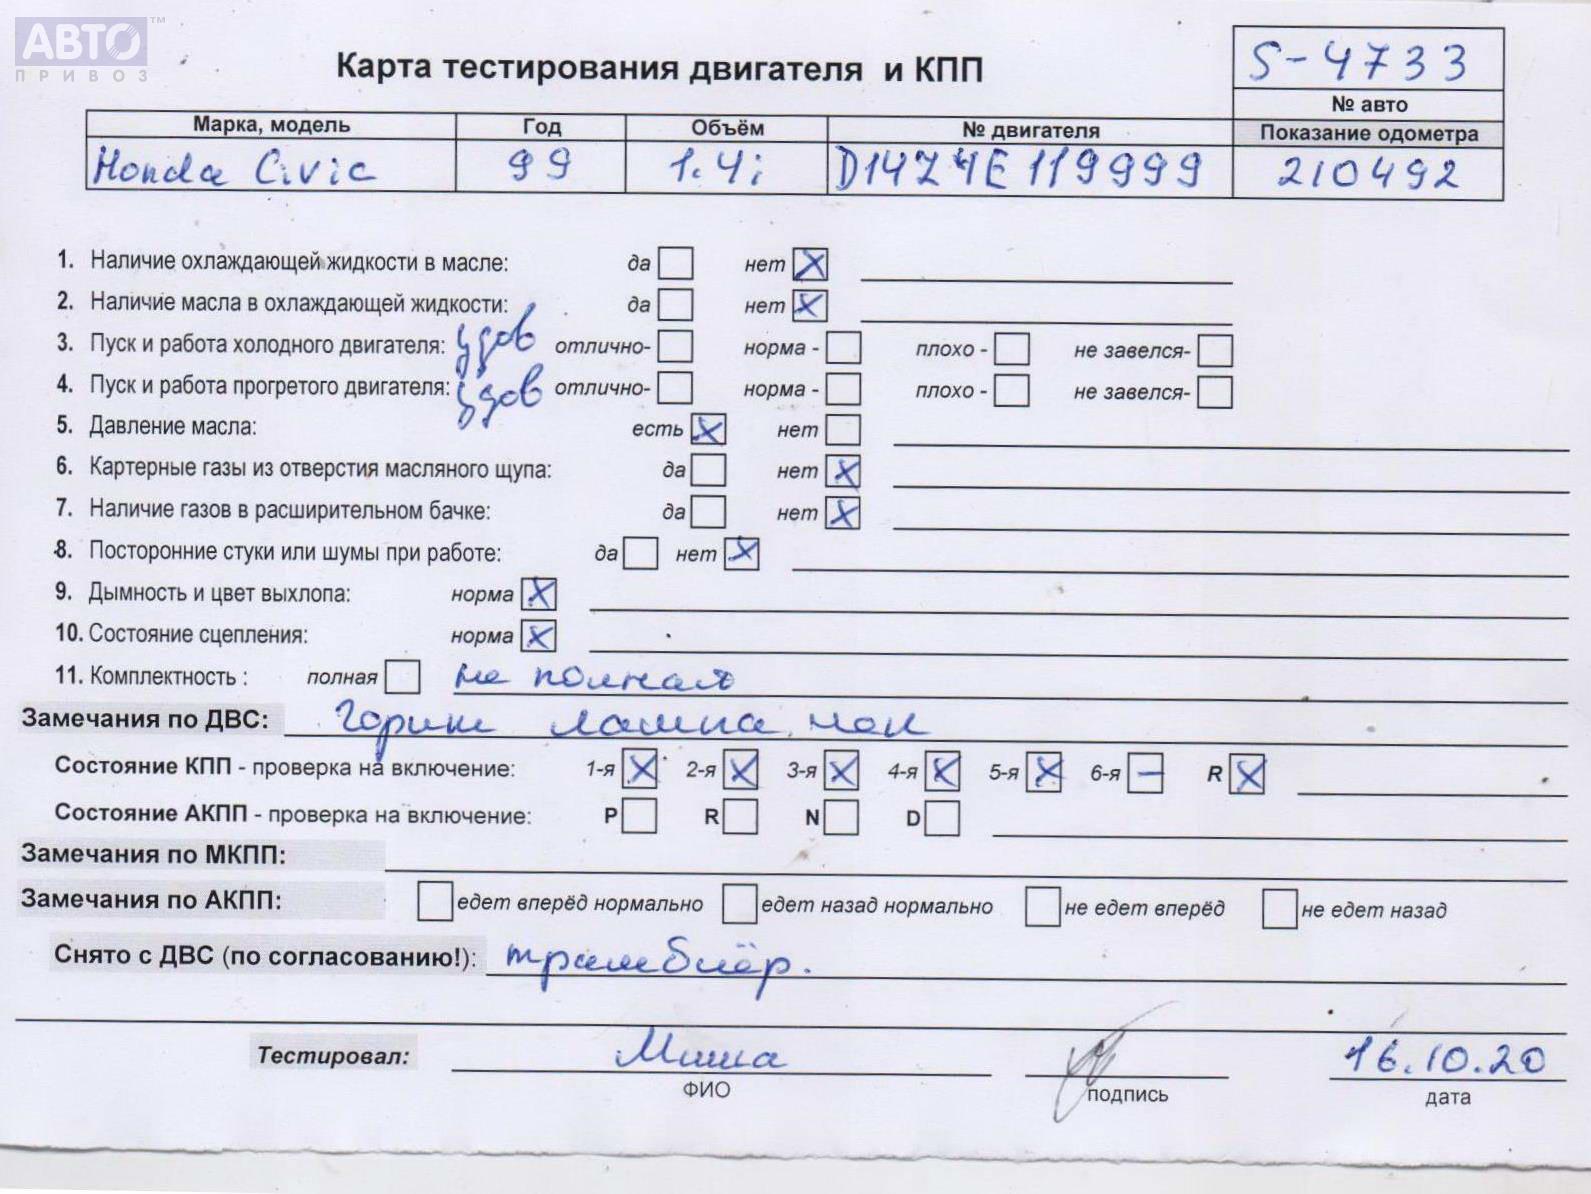 АВТО™
ПРИВОЗ
Карта тестирования двигателя и КПП
S-4733
№ авто
Марка, модель Год Объём № двигателя Показание одометра
Honda Civic 99 1.4i D14Z4E119999 210492
1. Наличие охлаждающей жидкости в масле: да нет X
2. Наличие масла в охлаждающей жидкости: да нет X
3. Пуск и работа холодного двигателя: удов отлично- норма - плохо - не завелся-
4. Пуск и работа прогретого двигателя: удов отлично- норма - плохо - не завелся-
5. Давление масла: есть X нет
6. Картерные газы из отверстия масляного щупа: да нет X
7. Наличие газов в расширительном бачке: да нет X
8. Посторонние стуки или шумы при работе: да нет X
9. Дымность и цвет выхлопа: норма X
10. Состояние сцепления: норма X
11. Комплектность : полная не полная
Замечания по ДВС: Горит лампа чек
Состояние КПП - проверка на включение: 1-я X 2-я X 3-я X 4-я X 5-я X 6-я – R X
Состояние АКПП - проверка на включение: P R N D
Замечания по МКПП:
Замечания по АКПП: едет вперёд нормально едет назад нормально не едет вперёд не едет назад
Снято с ДВС (по согласованию!): трамблёр.
Тестировал: Миша 16.10.20
ФИО подпись дата